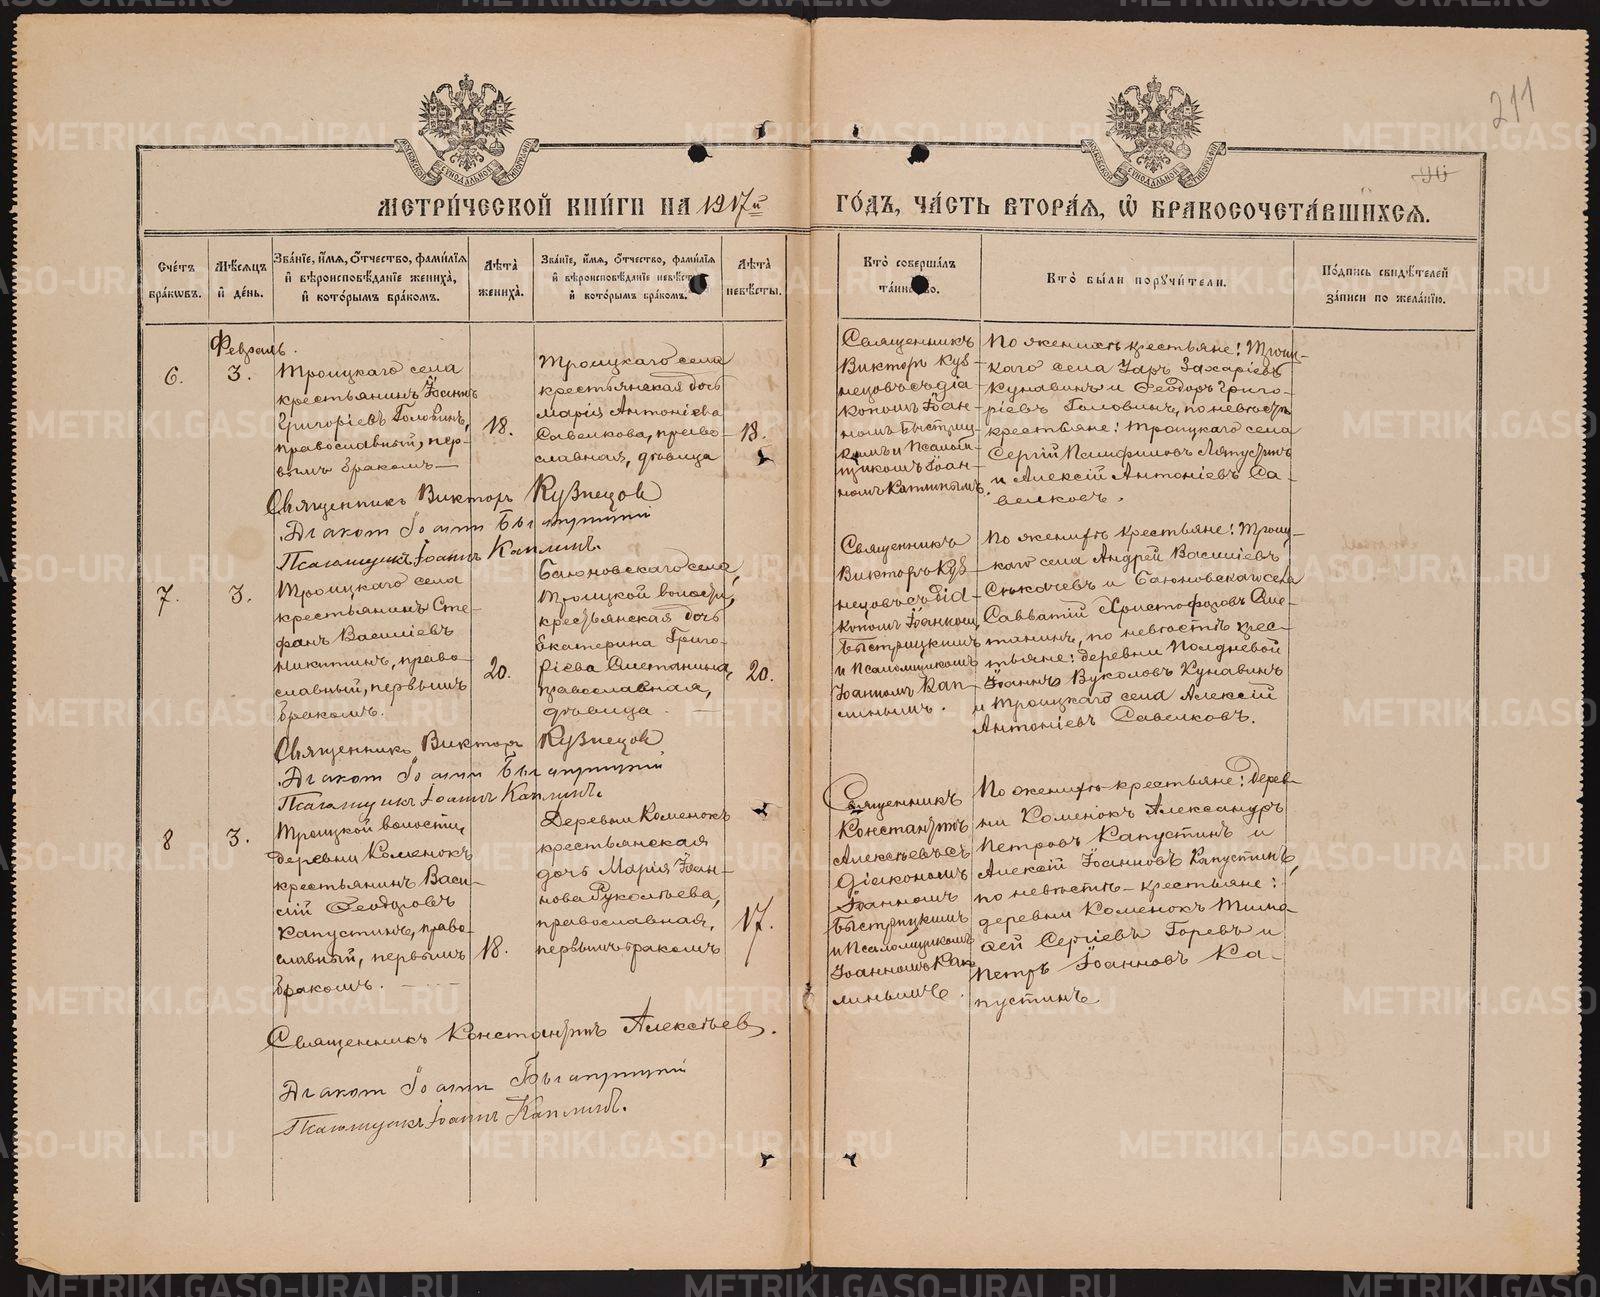 211
90
МЕТРИ́ЧЕСКОЙ КНИ́ГИ НА 1917й ГО́ДЪ, ЧА́СТЬ ВТОРА́Я, Ѡ҆ БРАКОСОЧЕТА́ВШИХСЯ.
Сче́тъ бра́кѡвъ.
Мѣ́сяцъ и҆ де́нь.
Зва́нїе, и҆́мя, ѻ҆́тчество, фами́лїя и҆ вѣроисповѣ́данїе жениха̀, и҆ кото́рымъ бра́комъ.
Лѣ́та жениха̀.
Зва́нїе, и҆́мя, ѻ҆́тчество, фами́лїя и҆ вѣроисповѣ́данїе невѣ́сты, и҆ кото́рымъ бра́комъ.
Лѣ́та невѣ́сты.
Кто̀ соверша́лъ та́инство.
Кто̀ бы́ли порꙋчи́тели.
По́дпись свидѣ́телей за́писи по жела́нїю.
Февраль.
6.
3.
Троицкаго села
крестьянинъ Іоаннъ
Григоріевъ Головинъ,
православный, пер-
вымъ бракомъ
18.
Троицкаго села
крестьянская дочь
Марія Антоніева
Савелкова, право-
славная, дѣвица
18.
Священникъ
Викторъ Куз-
нецовъ съ діа-
кономъ Іоан-
номъ Быстриц-
кимъ и Псалом-
щикомъ Іоан-
номъ Каплинымъ.
По женихѣ крестьяне: Троиц-
каго села Уаръ Захаріевъ
Кунавинъ и Ѳеодоръ Григо-
ріевъ Головинъ, по невѣстѣ
крестьяне: Троицкаго села
Сергій Памфиловъ Лапустинъ
и Алексій Антоніевъ Са-
велковъ.
Священникъ Викторъ Кузнецов
Діакон Іоанн Быстрицкій
Псаломщикъ Іоаннъ Каплинъ.
7.
3.
Троицкаго села
крестьянинъ Сте-
фанъ Василіевъ
Никитинъ, право-
славный, первымъ
бракомъ.
20.
Баюновскаго села,
Троицкой волости,
крестьянская дочь
Екатерина Григо-
ріева Сметанина,
православная,
дѣвица
20.
Священникъ
Викторъ Куз-
нецовъ съ діа-
кономъ Іоанномъ
Быстрицкимъ
и Псаломщикомъ
Іоанномъ Кап-
линымъ.
По женихѣ крестьяне: Троиц-
каго села Андрей Василіевъ
Секачевъ и Баюновскаго села
Савватій Христофоровъ Сме-
танинъ, по невѣстѣ крес-
тьяне: деревни Полдневой
Іоаннъ Вуколовъ Кунавинъ
и Троицкаго села Алексій
Антоніевъ Савелковъ.
Священникъ Викторъ Кузнецов
Діакон Іоанн Быстрицкій
Псаломщикъ Іоаннъ Каплинъ.
8
3.
Троицкой волости,
деревни Коменокъ
крестьянинъ Васи-
лій Ѳеодоровъ
Капустинъ, право-
славный, первымъ
бракомъ.
18.
Деревни Коменокъ
крестьянская
дочь Марія Іоан-
нова Руколѣева,
православная,
первымъ бракомъ
17.
Священникъ
Константинъ
Алексѣевъ съ
Діакономъ
Іоанномъ
Быстрицкимъ
и Псаломщикомъ
Іоанномъ Кап-
линымъ.
По женихѣ крестьяне: дерев-
ни Коменокъ Александръ
Петровъ Капустинъ и
Алексій Іоанновъ Капустинъ,
по невѣстѣ - крестьяне:
деревни Коменокъ Тимо-
ѳей Сергіевъ Горевъ и
Петръ Іоанновъ Ка-
пустинъ
Священникъ Константинъ Алексѣев.
Діакон Іоанн Быстрицкій
Псаломщикъ Іоаннъ Каплинъ.
METRIKI.GASO-URAL.RU